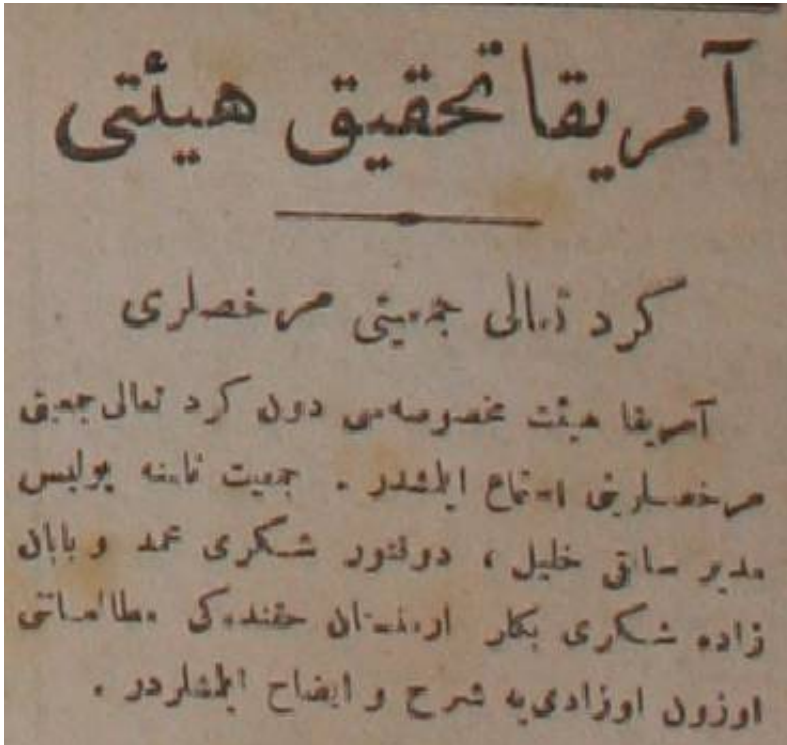 آمریقا تحقیق هیئتی
كرد تعالی جمعیتی مرخصلری
آمریقا هیئت مخصوصه‌سی دون كرد تعالی جمعیتی
مرخصلرینی استماع ایلمشدر . جمعیت نامنه پولیس
مدیر سابقی خلیل ، دوقتور شكری محمد و بابان
زاده شكری بكلر ارمنستان حقنده‌كی مطالعاتی
اوزون اوزادی‌یه شرح و ایضاح ایلمشلردر .